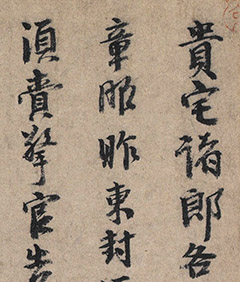 貴宅諸郎各
章服昨東封
須賫擎官告